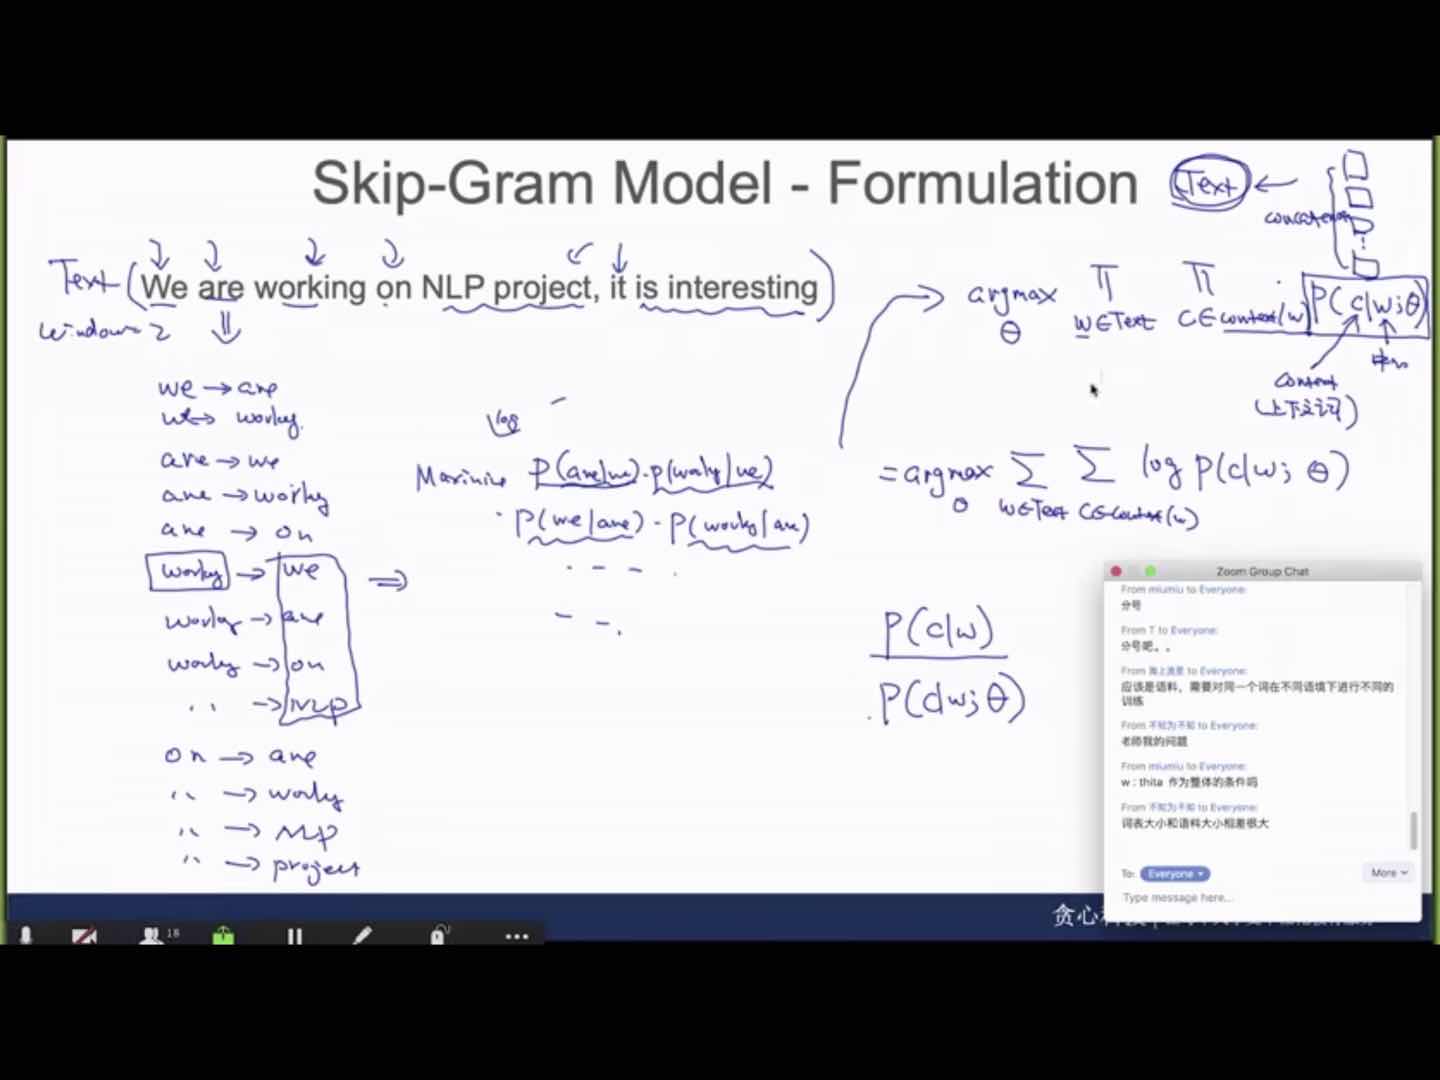 Skip-Gram Model - Formulation
Text
Text (We are working on NLP project, it is interesting)
window=2
we → are
we → working
are → we
are → working
are → on
working → we
working → are
working → on
〃 → NLP
on → are
〃 → working
〃 → NLP
〃 → project
log
Maximize P(are|we)·P(working|we)
·P(we|are)·P(working|are)
argmax ∏ ∏ P(c|w;θ)
θ w∈Text c∈context(w)
context
(上下文词)
=argmax Σ Σ log P(c|w;θ)
θ w∈Text c∈context(w)
P(c|w)
P(c|w;θ)
Zoom Group Chat
From miumiu to Everyone:
分号
From T to Everyone:
分号吧。。
From 海上流星 to Everyone:
应该是语料，需要对同一个词在不同语境下进行不同的
训练
From 不知为不知 to Everyone:
老师我的问题
From miumiu to Everyone:
w : thita 作为整体的条件吗
From 不知为不知 to Everyone:
词表大小和语料大小相差很大
To: Everyone
More
Type message here...
18
贪心科技